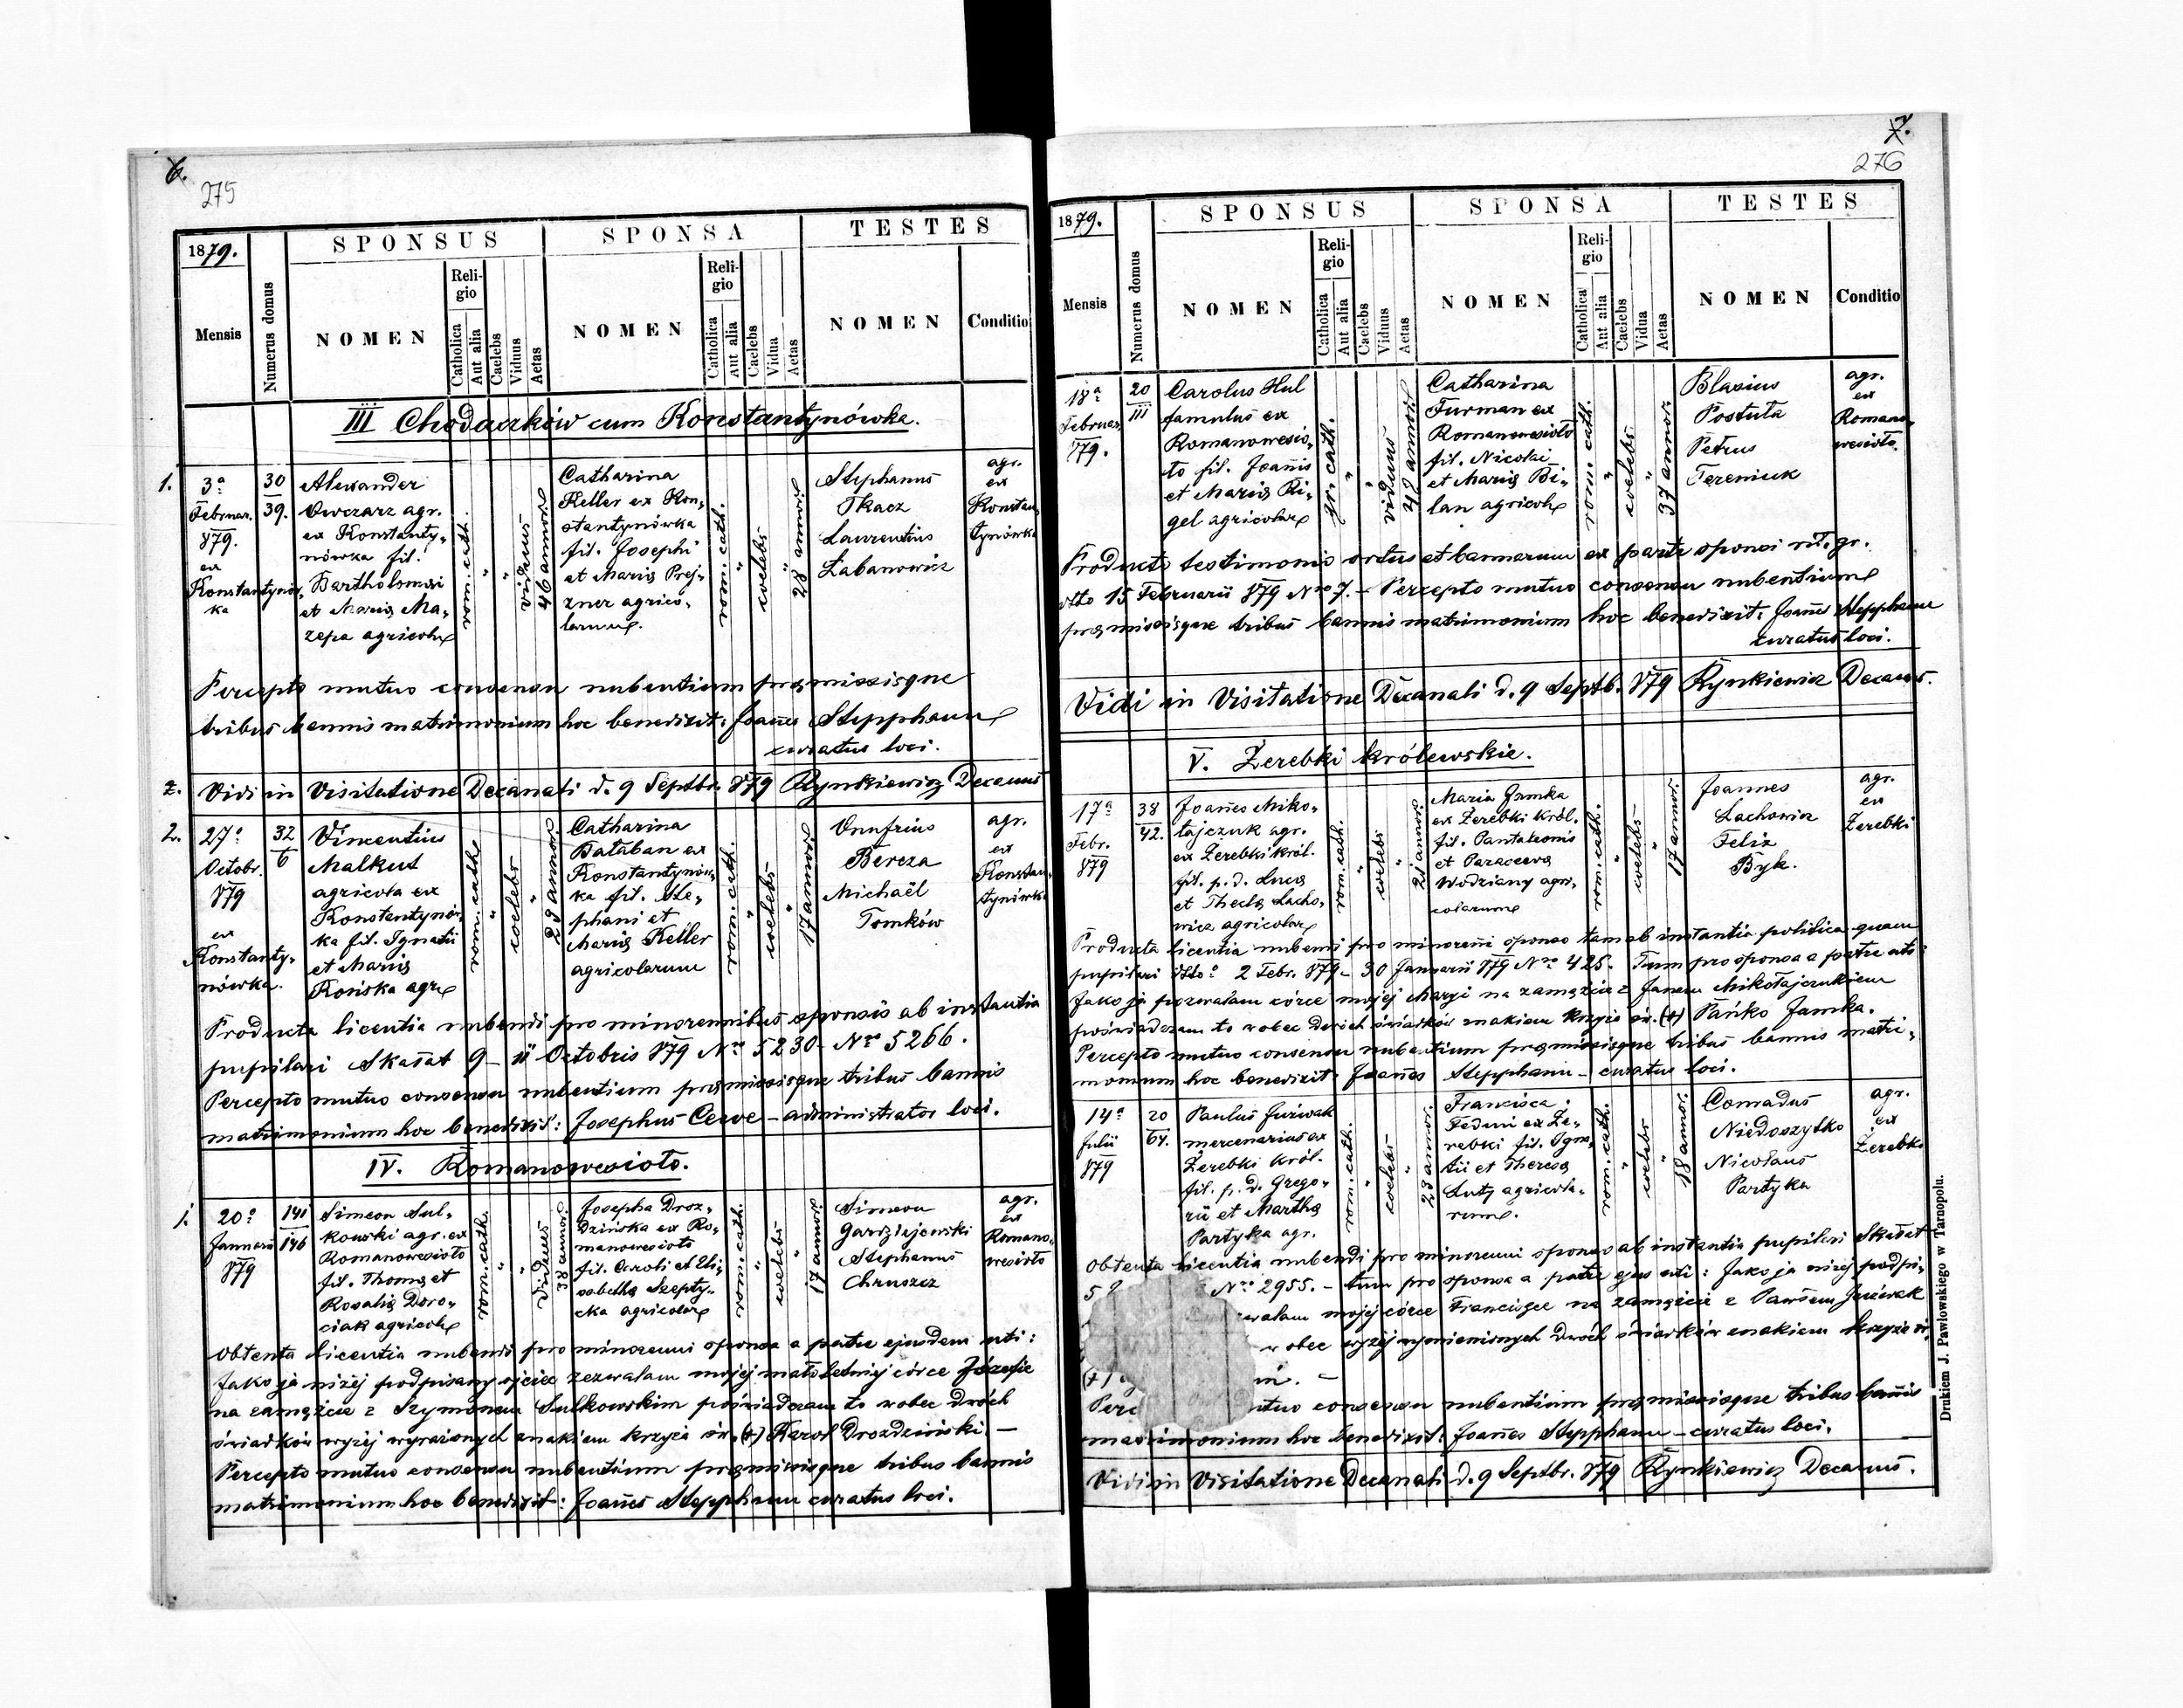 6.
275
1879.
Mensis
Numerus domus
SPONSUS
SPONSA
TESTES
NOMEN
Religio
Catholica
Aut alia
Caelebs
Viduus
Aetas
NOMEN
Religio
Catholica
Aut alia
Caelebs
Vidua
Aetas
NOMEN
Conditio
III Chodaczków cum Konstantynówka.
1.
3a
Februar.
879.
ex
Konstantynów
ka
30
39.
Alexander
Owczarz agr.
ex Konstanty-
nówka fil.
Bartholomæi
et Mariæ Ma-
zepa agricolæ
rom. cath.
"
"
viduus
46 annor.
Catharina
Keller ex Kon-
stantynówka
fil. Josephi
et Mariæ Prej-
zner agrico-
larum
rom. cath.
"
coelebs
"
28 annor.
Stephanus
Tkacz
Laurentius
Łabanowicz
agr.
ex
Konstan
tynówka
Percepto mutuo consensu nubentium præmissisque
tribus bannis matrimonium hoc benedixit: Joannes Stepphann
curatus loci.
2. Vidi in Visitatione Decanali d. 9 Septbr. 879 Rynkiewicz Decanus
2.
27a
Octobr.
879
ex
Konstanty-
nówka.
32
6
Vincentius
Malkut
agricola ex
Konstantynów
ka fil. Ignatii
et Mariæ
Końska agr
rom. cath
"
coelebs
"
23 annor.
Catharina
Bałaban ex
Konstantynów-
ka fil. Ste-
phani et
Mariæ Keller
agricolarum
rom. cath.
"
coelebs
"
17 annor.
Onufrius
Bereza
Michaël
Tomków
agr.
ex
Konstan
tynówka
Producta licentia nubendi pro minorennibus sponsis ab instantia
pupilari Skałat 9 - 11 Octobris 879 Nro 5230 - Nro 5266.
Percepto mutuo consensu nubentium præmissisque tribus bannis
matrimonium hoc benedixit: Josephus Cerve - administrator loci.
IV. Romanowesioło.
1.
20a
Januarii
879
141
146
Simeon Sul-
kowski agr. ex
Romanowesioło
fil. Thomæ et
Rosaliæ Doro-
ciak agricolæ
rom. cath.
"
"
viduus
38 annor.
Josepha Droz-
dzińska ex Ro-
manowesioło
fil. Caroli et Eli-
sabethæ Szepty-
cka agricolar
rom. cath.
"
coelebs
"
17 annor.
Simeon
Stephanus
Chruszcz
agr.
ex
Romano-
wesioło
Obtenta licentia nubendi pro minorenni sponsa a patre ejusdem uti:
Jako ja niżej podpisany ojciec zezwalam mojej małoletniej córce Józefie
na zamęźcie z Szymonem Sulkowskim poświadczam to wobec dwóch
świadków wyżej wyrażonych znakiem krzyża św. (+) Karol Drozdziński -
Percepto mutuo consensu nubentium præmissisque tribus bannis
matrimonium hoc benedixit: Joannes Stepphann curatus loci.
7.
276
1879.
Mensis
Numerus domus
SPONSUS
SPONSA
TESTES
NOMEN
Religio
Catholica
Aut alia
Caelebs
Viduus
Aetas
NOMEN
Religio
Catholica
Aut alia
Caelebs
Vidua
Aetas
NOMEN
Conditio
18a
Februar
879.
20
III
Carolus Hul
famulus ex
Romanowesio-
ło fil. Joannis
et Mariæ Ri-
gel agricolar
gr. cath.
"
"
viduus
42 annor.
Catharina
Furman ex
Romanowesioło
fil. Nicolai
et Mariæ Bi-
lan agricolæ
rom. cath.
"
coelebs
"
37 annor.
Blasius
Postuła
Petrus
Tereniuk
agr.
ex
Romano-
wesioło.
Producto testimonio ortus et bannorum ex parte sponsi rit. gr.
dtto 15 Februarii 879 Nro 7. - Percepto mutuo consensu nubentium
præmissisque tribus bannis matrimonium hoc benedixit: Joannes Stepphann
curatus loci.
Vidi in Visitatione Decanali d. 9 Septb. 879 Rynkiewicz Decanus.
V. Żerebki królewskie.
17a
Febr.
879
38
42.
Joannes Miko-
łajczuk agr.
ex Żerebki król.
fil. p. d. Lucæ
et Theclæ Lacho-
wicz agricolar
rom. cath.
"
coelebs
"
21 annor.
Maria Jamka
ex Żerebki król.
fil. Pantaleonis
et Parascevæ
Wodziany agri-
colarum
rom. cath.
"
coelebs
"
17 annor.
Joannes
Lachowicz
Felix
Byk.
agr.
ex
Żerebki
Producta licentia nubendi pro minorenni sponso tam ab instantia politica quam
pupilari dtto 2 Febr. 879 - 30 Januarii 879 Nro 425. Tum pro sponsa a patre uti:
Jako ja pozwalam córce mojej Maryi na zamęźcie z Janem Mikołajczukiem
poświadczam to wobec dwóch świadków znakiem krzyża św. (+) Pańko Jamka.
Percepto mutuo consensu nubentium præmissisque tribus bannis matri-
monium hoc benedixit: Joannes Stepphann - curatus loci.
14a
Julii
879
20
64.
Paulus Juźwak
mercenarius ex
Żerebki król.
fil. p. d. Grego-
rii et Marthæ
Partyka agr.
rom. cath.
"
coelebs
"
23 annor.
Francisca
ex Że-
rebki fil. Igna-
tii et Theresæ
Luty agricola-
rum.
rom. cath.
"
coelebs
"
18 annor.
Conradus
Niedoszytko
Nicolaus
Partyka
agr.
ex
Żerebki
Obtenta licentia nubendi pro minorenni sponso ab instantia pupilari Skałat
Nro 2955. - tum pro sponsa a patre ejus uti: Jako ja niżej podpi-
mojej córce Franciszce na zamęźcie z Pawłem Juźwak
wobec wyżej wymienionych dwóch świadków znakiem krzyża św.
(+)
Perc mutuo consensu nubentium præmissisque tribus bannis
matrimonium hoc benedixit: Joannes Stepphann - curatus loci.
Vidi in Visitatione Decanali d. 9 Septbr. 879 Rynkiewicz Decanus.
Drukiem J. Pawłowskiego w Tarnopolu.